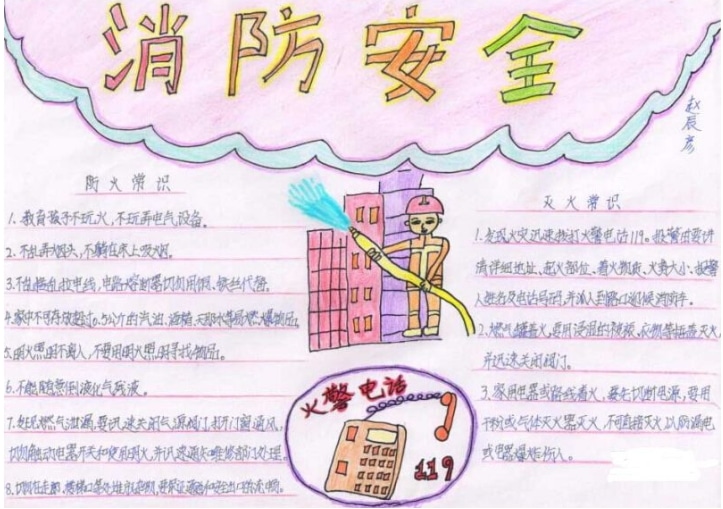 消防安全
赵辰彦
防火常识
1.教育孩子不玩火，不玩弄电气设备。
2.不乱弄烟头，不躺在床上吸烟。
3.不乱接乱拉电线，电路熔断器切勿用铜、铁丝代替。
4.家中不可存放超过0.5公斤的汽油、酒精、天那水等易燃、爆物品。
5.明火照明不离人，不要用明火照明寻找物品。
6.不能随意倒液化气残液。
7.发现燃气泄漏，要迅速关闭气源阀门，打开门窗通风，
切勿触动电器开关和使用明火，并迅速通知维修部门处理。
8.切勿在走廊、楼梯口等处堆放杂物，要保证通道和安全出口的流畅。
火警电话
119
灭火常识
1.发现火灾迅速拨打火警电话119。报警时要讲
清详细地址、起火部位、着火物质、火势大小、报警
人姓名及电话号码，并派人到路口迎候消防车。
2.燃气罐着火，要用浸湿的被褥、衣物等捂盖灭火
并迅速关闭阀门。
3.家用电器或路线着火，要先切断电源，要用
干粉或气体灭火器灭火，不可直接灭火以防漏电
或电器爆炸伤人。